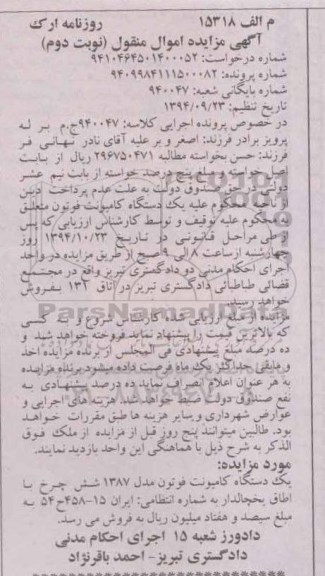 م الف ۱۵۳۱۸ روزنامه ارک
آگهی مزایده اموال منقول (نوبت دوم)
شماره درخواست: ۹۴۱۰۴۶۴۵۰۱۴۰۰۰۵۲
شماره پرونده: ۹۴۰۹۹۸۴۱۱۱۵۰۰۰۸۲
شماره بایگانی شعبه: ۹۴۰۰۴۷
تاریخ تنظیم: ۱۳۹۴/۰۹/۲۳
در خصوص پرونده اجرایی کلاسه: ۹۴۰۰۴۷ج.م بر له
پرویز برادر فرزند: اصغر و بر علیه آقای نادر نهانی فر
فرزند: حسن بخواسته مطالبه ۲۹۶۷۵۰۴۷۱ ریال از بابت
اصل خواسته و مبلغ پنج درصد خواسته از بابت نیم عشر
دولتی در حق صندوق دولت به علت عدم پرداخت دین
از ناحیه محکوم علیه یک دستگاه کامیونت فوتون متعلق
به محکوم علیه توقیف و توسط کارشناس ارزیابی که پس
از طی مراحل قانونی در تاریخ ۱۳۹۴/۱۰/۲۳ روز
چهارشنبه از ساعت ۸ الی ۹ صبح از طریق مزایده در واحد
اجرای احکام مدنی دو دادگستری تبریز واقع در مجتمع
قضائی طباطبائی دادگستری تبریز در اتاق ۱۳۲ بفروش
خواهد رسید.
مزایده از مبلغ ارزیابی شده کارشناس شروع و به کسی
که بالاترین قیمت را پیشنهاد نماید فروخته خواهد شد و
ده درصد مبلغ پیشنهادی فی المجلس از برنده مزایده اخذ
و مابقی حداکثر یک ماه فرصت داده میشود برنده مزایده
به هر عنوان اعلام انصراف نماید ده درصد پیشنهادی به
نفع صندوق دولت ضبط خواهد شد، هزینه های اجرایی و
عوارض شهرداری و سایر هزینه ها طبق مقررات خواهد
بود. طالبین میتوانند پنج روز قبل از مزایده از ملک فوق
الذکر به شرح ذیل با هماهنگی این واحد بازدید نمایند.
مورد مزایده:
یک دستگاه کامیونت فوتون مدل ۱۳۸۷ شش چرخ با
اطاق یخچالدار به شماره انتظامی: ایران ۱۵-۴۵۸ع۵۴ به
مبلغ سیصد و هفتاد میلیون ریال به فروش می رسد.
دادورز شعبه ۱۵ اجرای احکام مدنی
دادگستری تبریز- احمد باقرنژاد